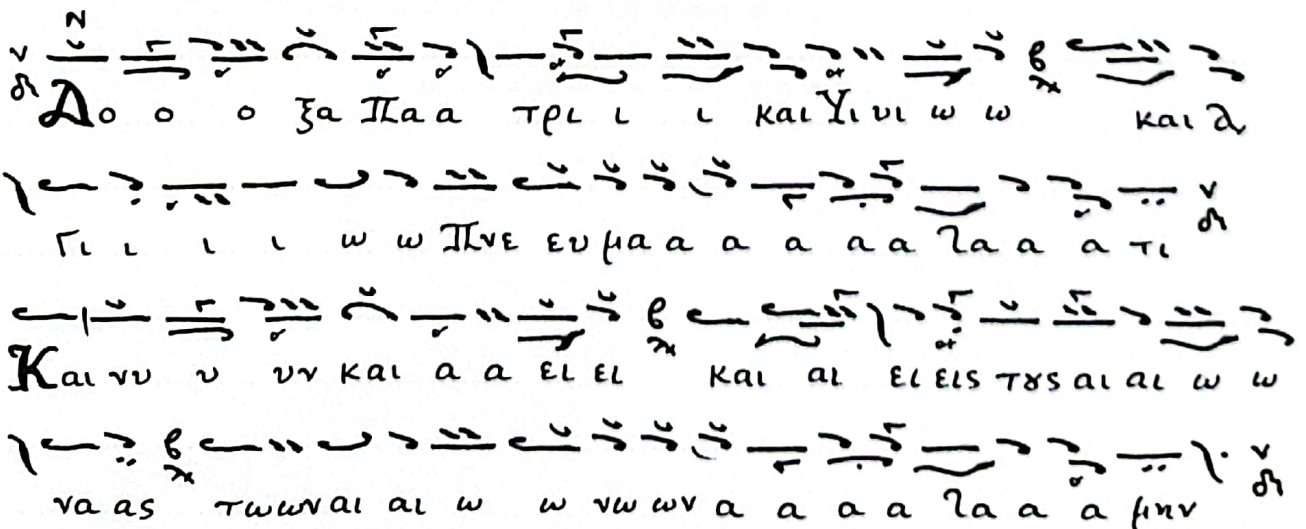 Δο ο ο ξα Πα α τρι ι ι και Υι υι ω ω και Α
γι ι ι ι ω ω Πνε ευ μα α α α α α γα α α τι
Και νυ υ υν και α α ει ει και αι ει εις τȣς αι αι ω ω
να ας τωων αι αι ω ω νω ων α α α α γα α α μην